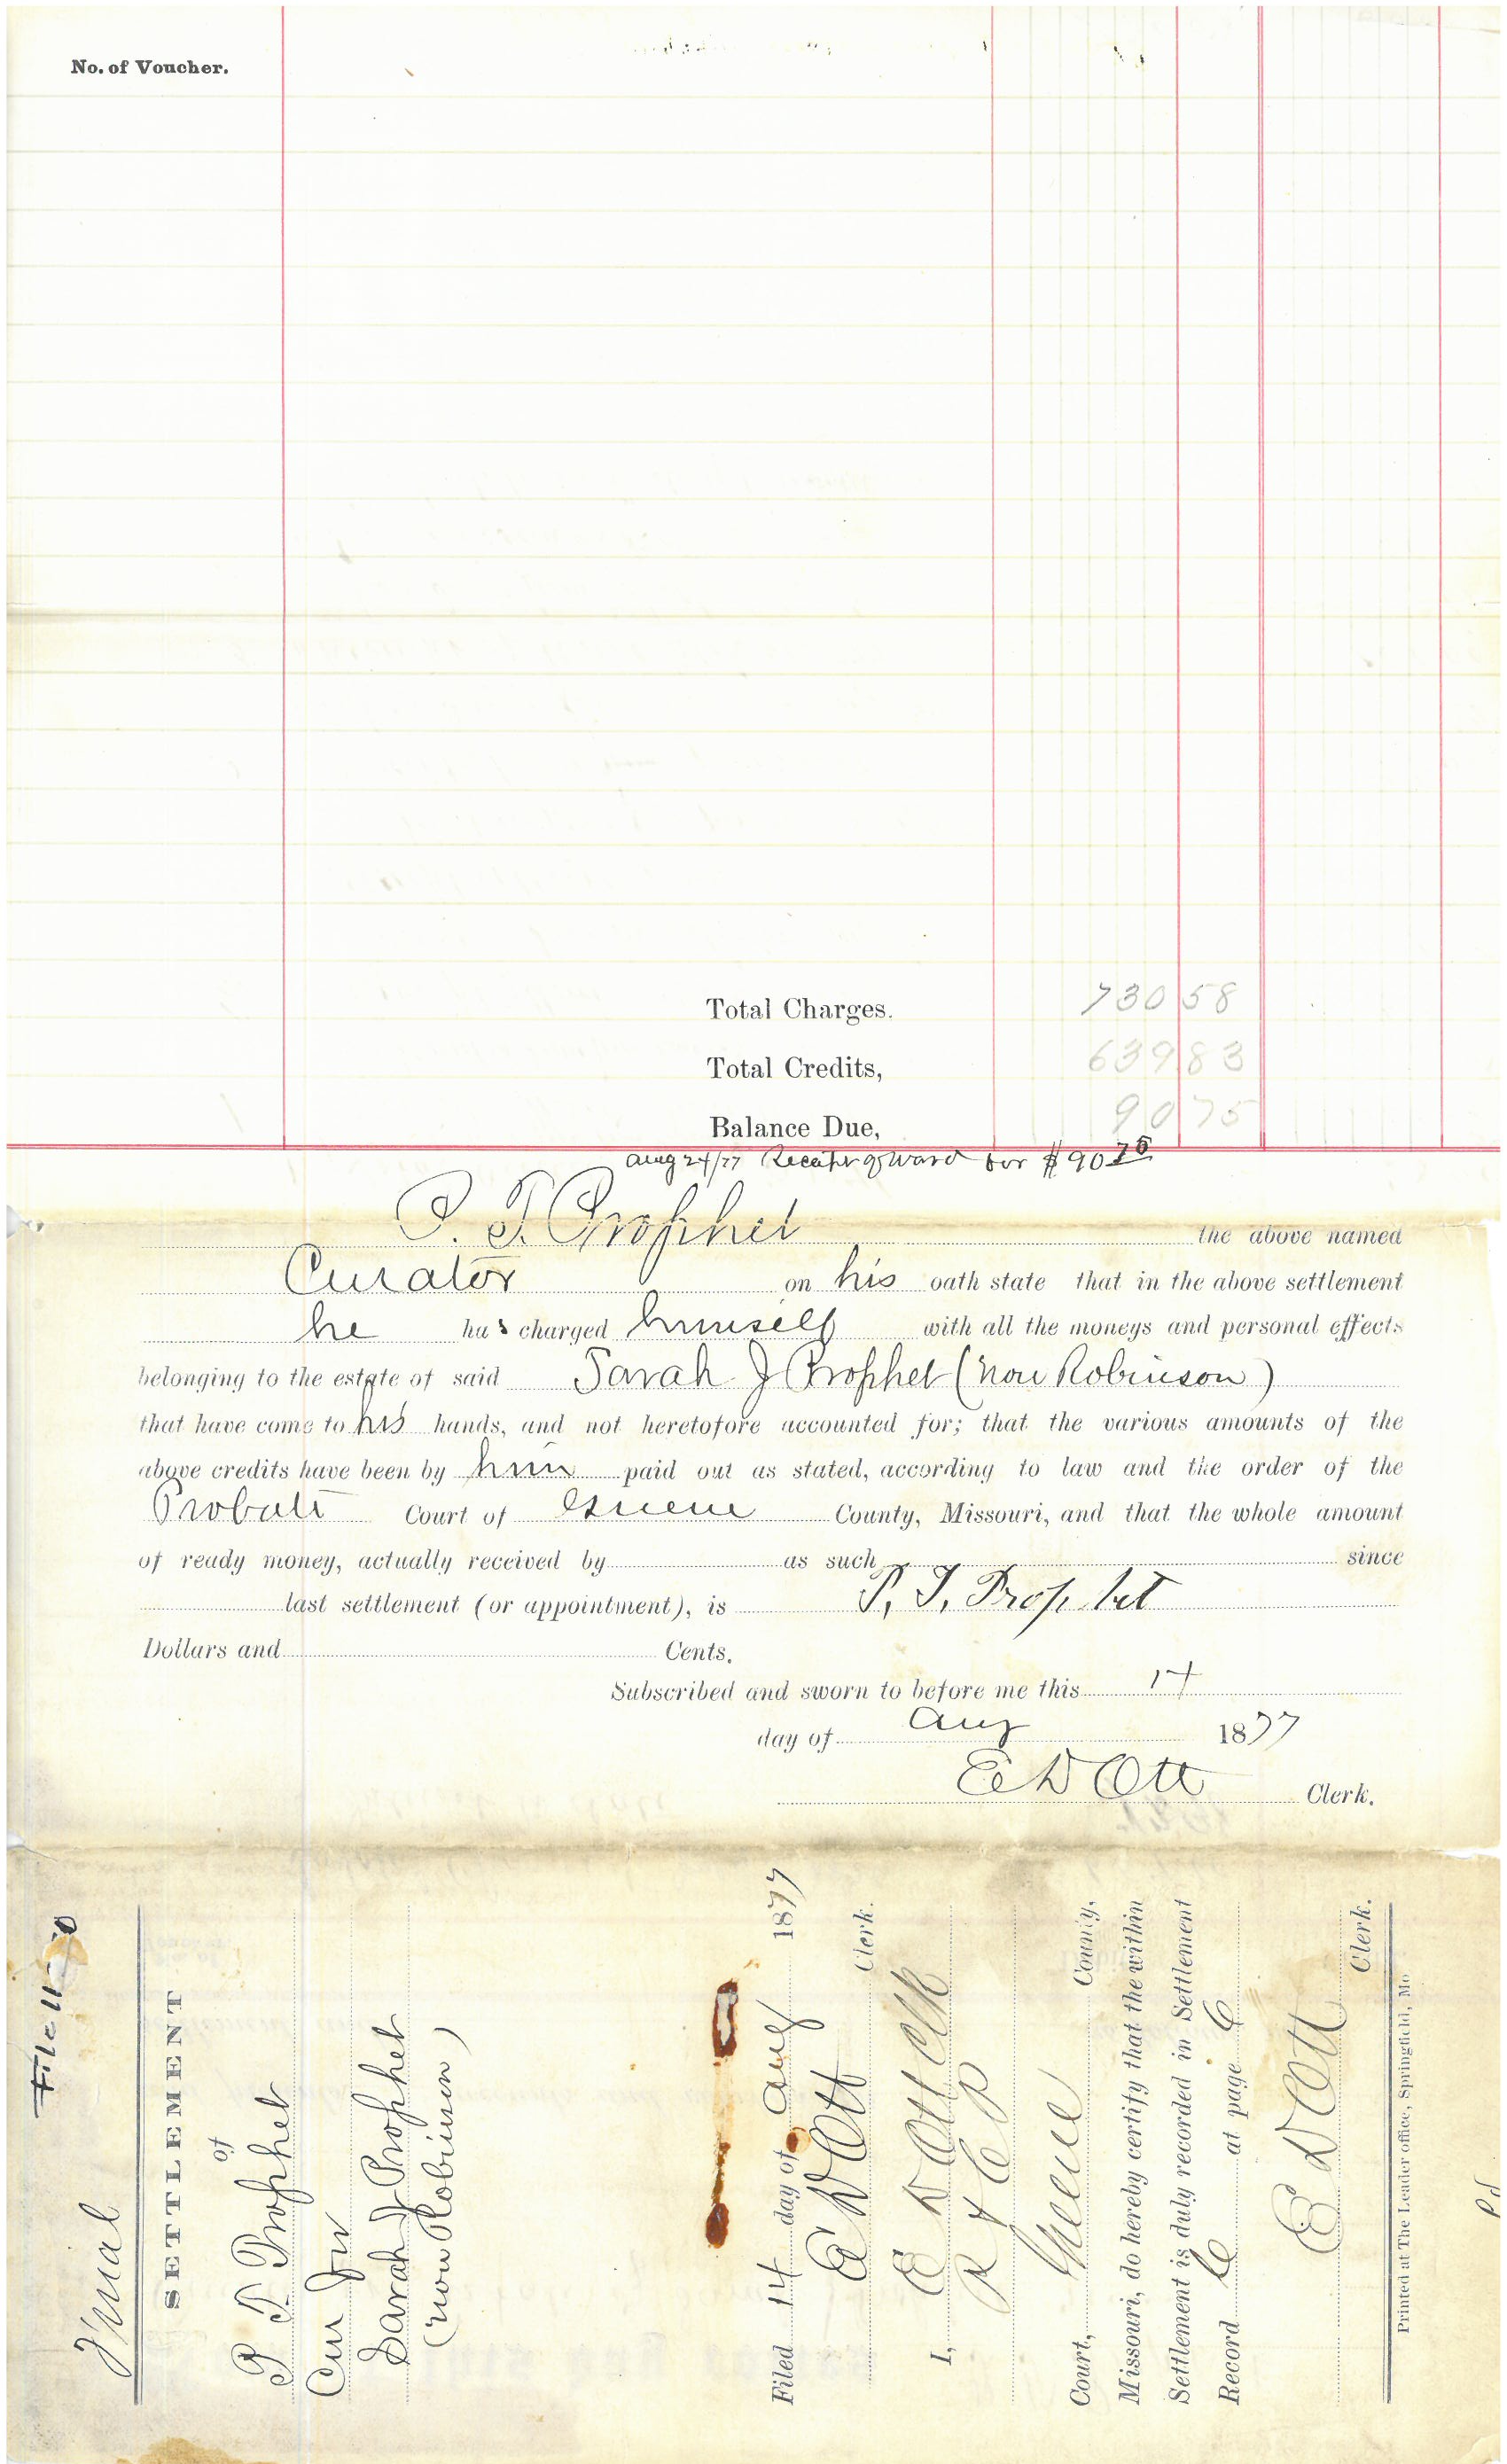 No. of Voucher.
Total Charges. 730 58
Total Credits, 639 83
Balance Due, 90 75
Aug 24/77 Receipt of Ward for $90 75
P. T. Prophet the above named
Curator on his oath state that in the above settlement
he has charged himself with all the moneys and personal effects
belonging to the estate of said Sarah J Prophet (now Robinson)
that have come to his hands, and not heretofore accounted for; that the various amounts of the
above credits have been by him paid out as stated, according to law and the order of the
Probate Court of Greene County, Missouri, and that the whole amount
of ready money, actually received by as such since
last settlement (or appointment), is P. T. Prophet
Dollars and Cents.
Subscribed and sworn to before me this 14
day of Aug 1877
E D Ott Clerk.
File
Final
SETTLEMENT
of
P T Prophet
Cur for
Sarah J Prophet
(now Robinson)
Filed 14 day of Aug 1877
E D Ott Clerk.
I, E D Ott Clk
Court, Greene County,
Missouri, do hereby certify that the within
Settlement is duly recorded in Settlement
Record C at page 6
E D Ott Clerk.
Printed at The Leader office, Springfield, Mo